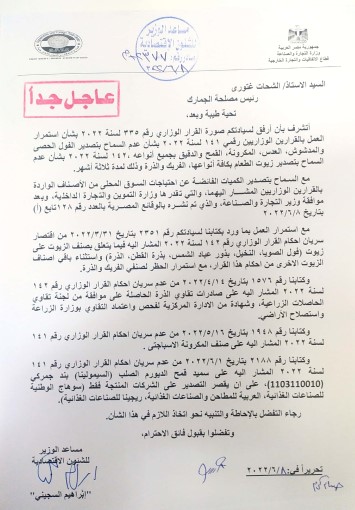 جمهورية مصر العربية
وزارة التجارة والصناعة
قطاع الاتفاقيات والتجارة الخارجية
مساعد الوزير
للشئون الاقتصادية
عاجل جداً
السيد الاستاذ/ الشحات غتورى
رئيس مصلحة الجمارك
تحية طيبة وبعد،
أتشرف بأن أرفق لسيادتكم صورة القرار الوزاري رقم ٣٣٥ لسنة ٢٠٢٢ بشأن استمرار
العمل بالقرارين الوزاريين رقمي ١٤١ لسنة ٢٠٢٢ بشأن عدم السماح بتصدير الفول الحصى
والمدشوش، العدس، المكرونة، القمح والدقيق بجميع أنواعه، ١٤٢ لسنة ٢٠٢٢ بشأن عدم
السماح بتصدير زيوت الطعام بكافة أنواعها، الفريك والذرة وذلك لمدة ثلاثة أشهر.
مع السماح بتصدير الكميات الفائضة عن احتياجات السوق المحلى من الأصناف الواردة
بالقرارين الوزاريين المشار اليهما، والتي تقدرها وزارة التموين والتجارة الداخلية، وبعد
موافقة وزير التجارة والصناعة، والذي تم نشره بالوقائع المصرية بالعدد رقم ١٢٨ تابع (أ)
بتاريخ ٢٠٢٢/٦/٨.
مع استمرار العمل بما ورد بكتابنا لسيادتكم رقم ٢٣٥١ بتاريخ ٢٠٢٢/٣/٣١ من اقتصار
سريان احكام القرار الوزاري رقم ١٤٢ لسنة ٢٠٢٢ المشار اليه فيما يتعلق بصنف الزيوت على
زيوت (فول الصويا، النخيل، بذور عباد الشمس، بذرة القطن، الذرة) واستثناء باقي اصناف
الزيوت الاخرى من احكام هذا القرار، مع استمرار الحظر لصنفي الفريك والذرة.
وكتابنا رقم ١٥٧٦ بتاريخ ٢٠٢٢/٤/١٤ من عدم سريان احكام القرار الوزاري رقم ١٤٢ لسنة
٢٠٢٢ المشار اليه على صادرات تقاوي الذرة الحاصلة على موافقة من لجنة تقاوي
الحاصلات الزراعية، وشهادة من الادارة المركزية لفحص واعتماد التقاوي بوزارة الزراعة
واستصلاح الأراضي.
وكتابنا رقم ١٩٤٨ بتاريخ ٢٠٢٢/٥/١٦ من عدم سريان احكام القرار الوزاري رقم ١٤١
لسنة ٢٠٢٢ المشار اليه على صنف المكرونة الاسباجتى.
وكتابنا رقم ٢١٨٨ بتاريخ ٢٠٢٢/٦/١ من عدم سريان احكام القرار الوزاري رقم ١٤١
لسنة ٢٠٢٢ المشار اليه على سميد قمح الديورم الصلب (السيمولينا) بند جمركي
(1103110010)، على ان يقصر التصدير على الشركات المنتجة فقط (سوهاج الوطنية
للصناعات الغذائية، العربية للمطاحن والصناعات الغذائية، ريجينا للصناعات الغذائية).
رجاء التفضل بالإحاطة والتنبيه نحو اتخاذ اللازم في هذا الشأن.
وتفضلوا بقبول فائق الاحترام،
مساعد الوزير
للشئون الاقتصادية
"إبراهيم السجيني"
تحريراً في: ٢٠٢٢/٦/٨